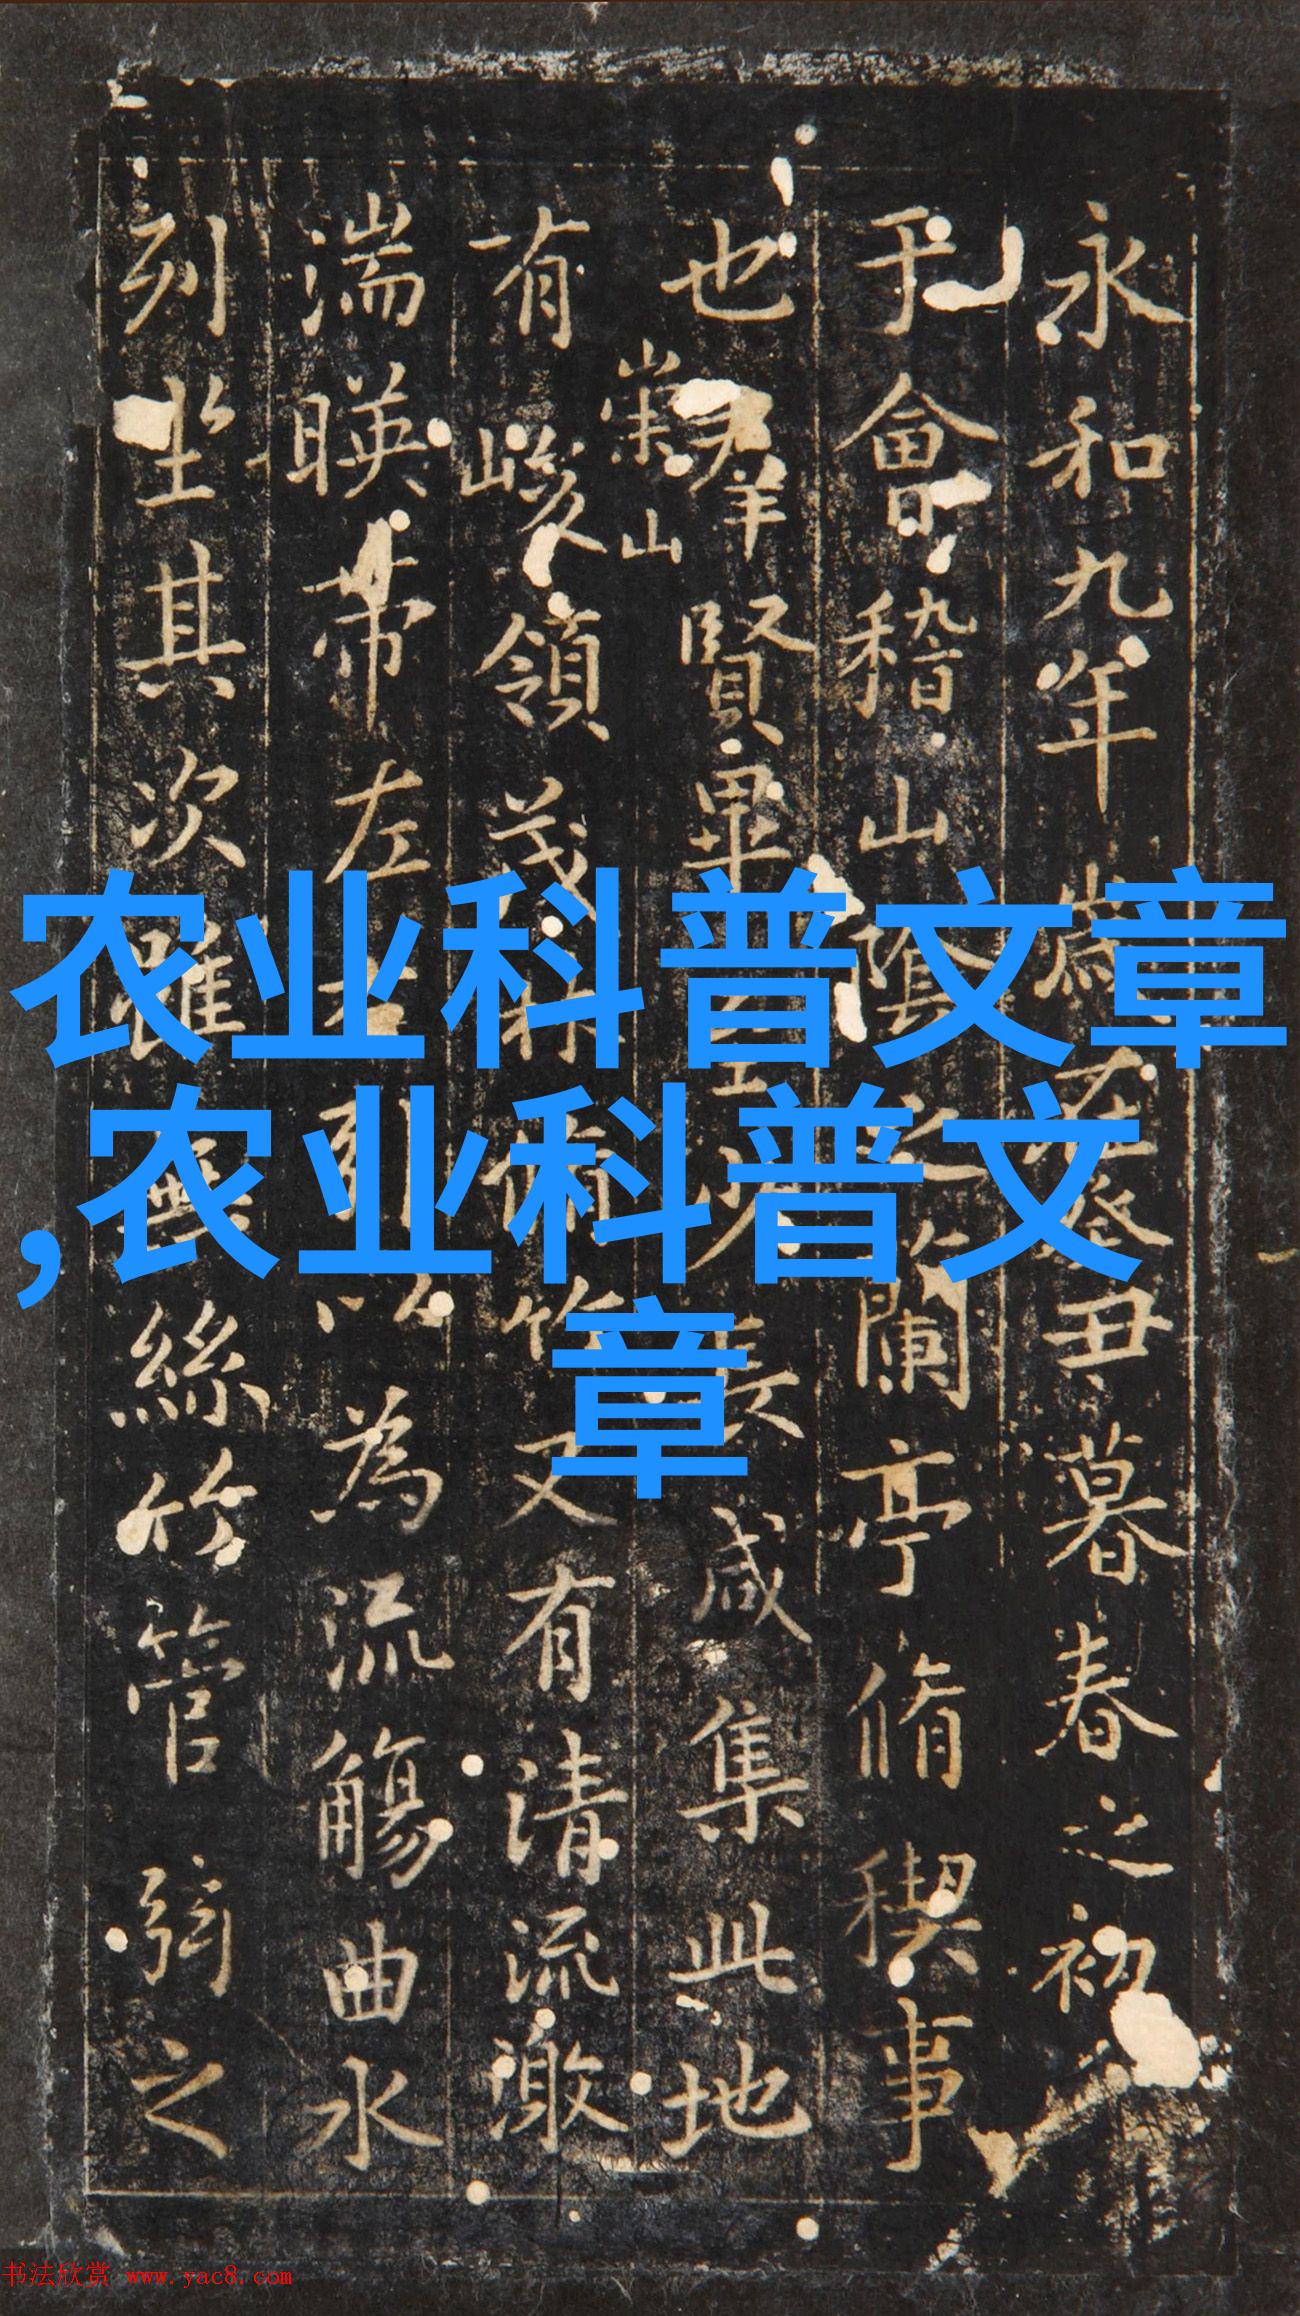 永和九年歲在癸丑暮春之初
于會稽山陰之蘭亭脩稧事
也羣賢畢至少長咸集此地
崇山
有峻領茂林脩竹又有清流激
湍暎帶左右引以為流觴曲水
列坐其次雖無絲竹管弦之
农业科普文章
,农业科普文
章
书法欣赏 www.yac8.com